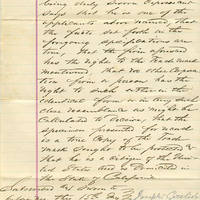 being duly sworn deposes and
says that he is one of the
applicants above named, that
the facts set forth in the
foregoing specifications are
true, that the firm aforesaid
has the right to the trade mark
mentioned, that no other corpora-
tion or person has the
right to such either in the
identical form or in any such
near resemblance as might be
calculated to deceive, that the
specimen presented forwarded
is a true copy of the trade
mark sought to be protected &
that he is a citizen of the Uni-
ted States and is domiciled in
the State of California.
Subscribed & sworn to
this 15th day Joseph